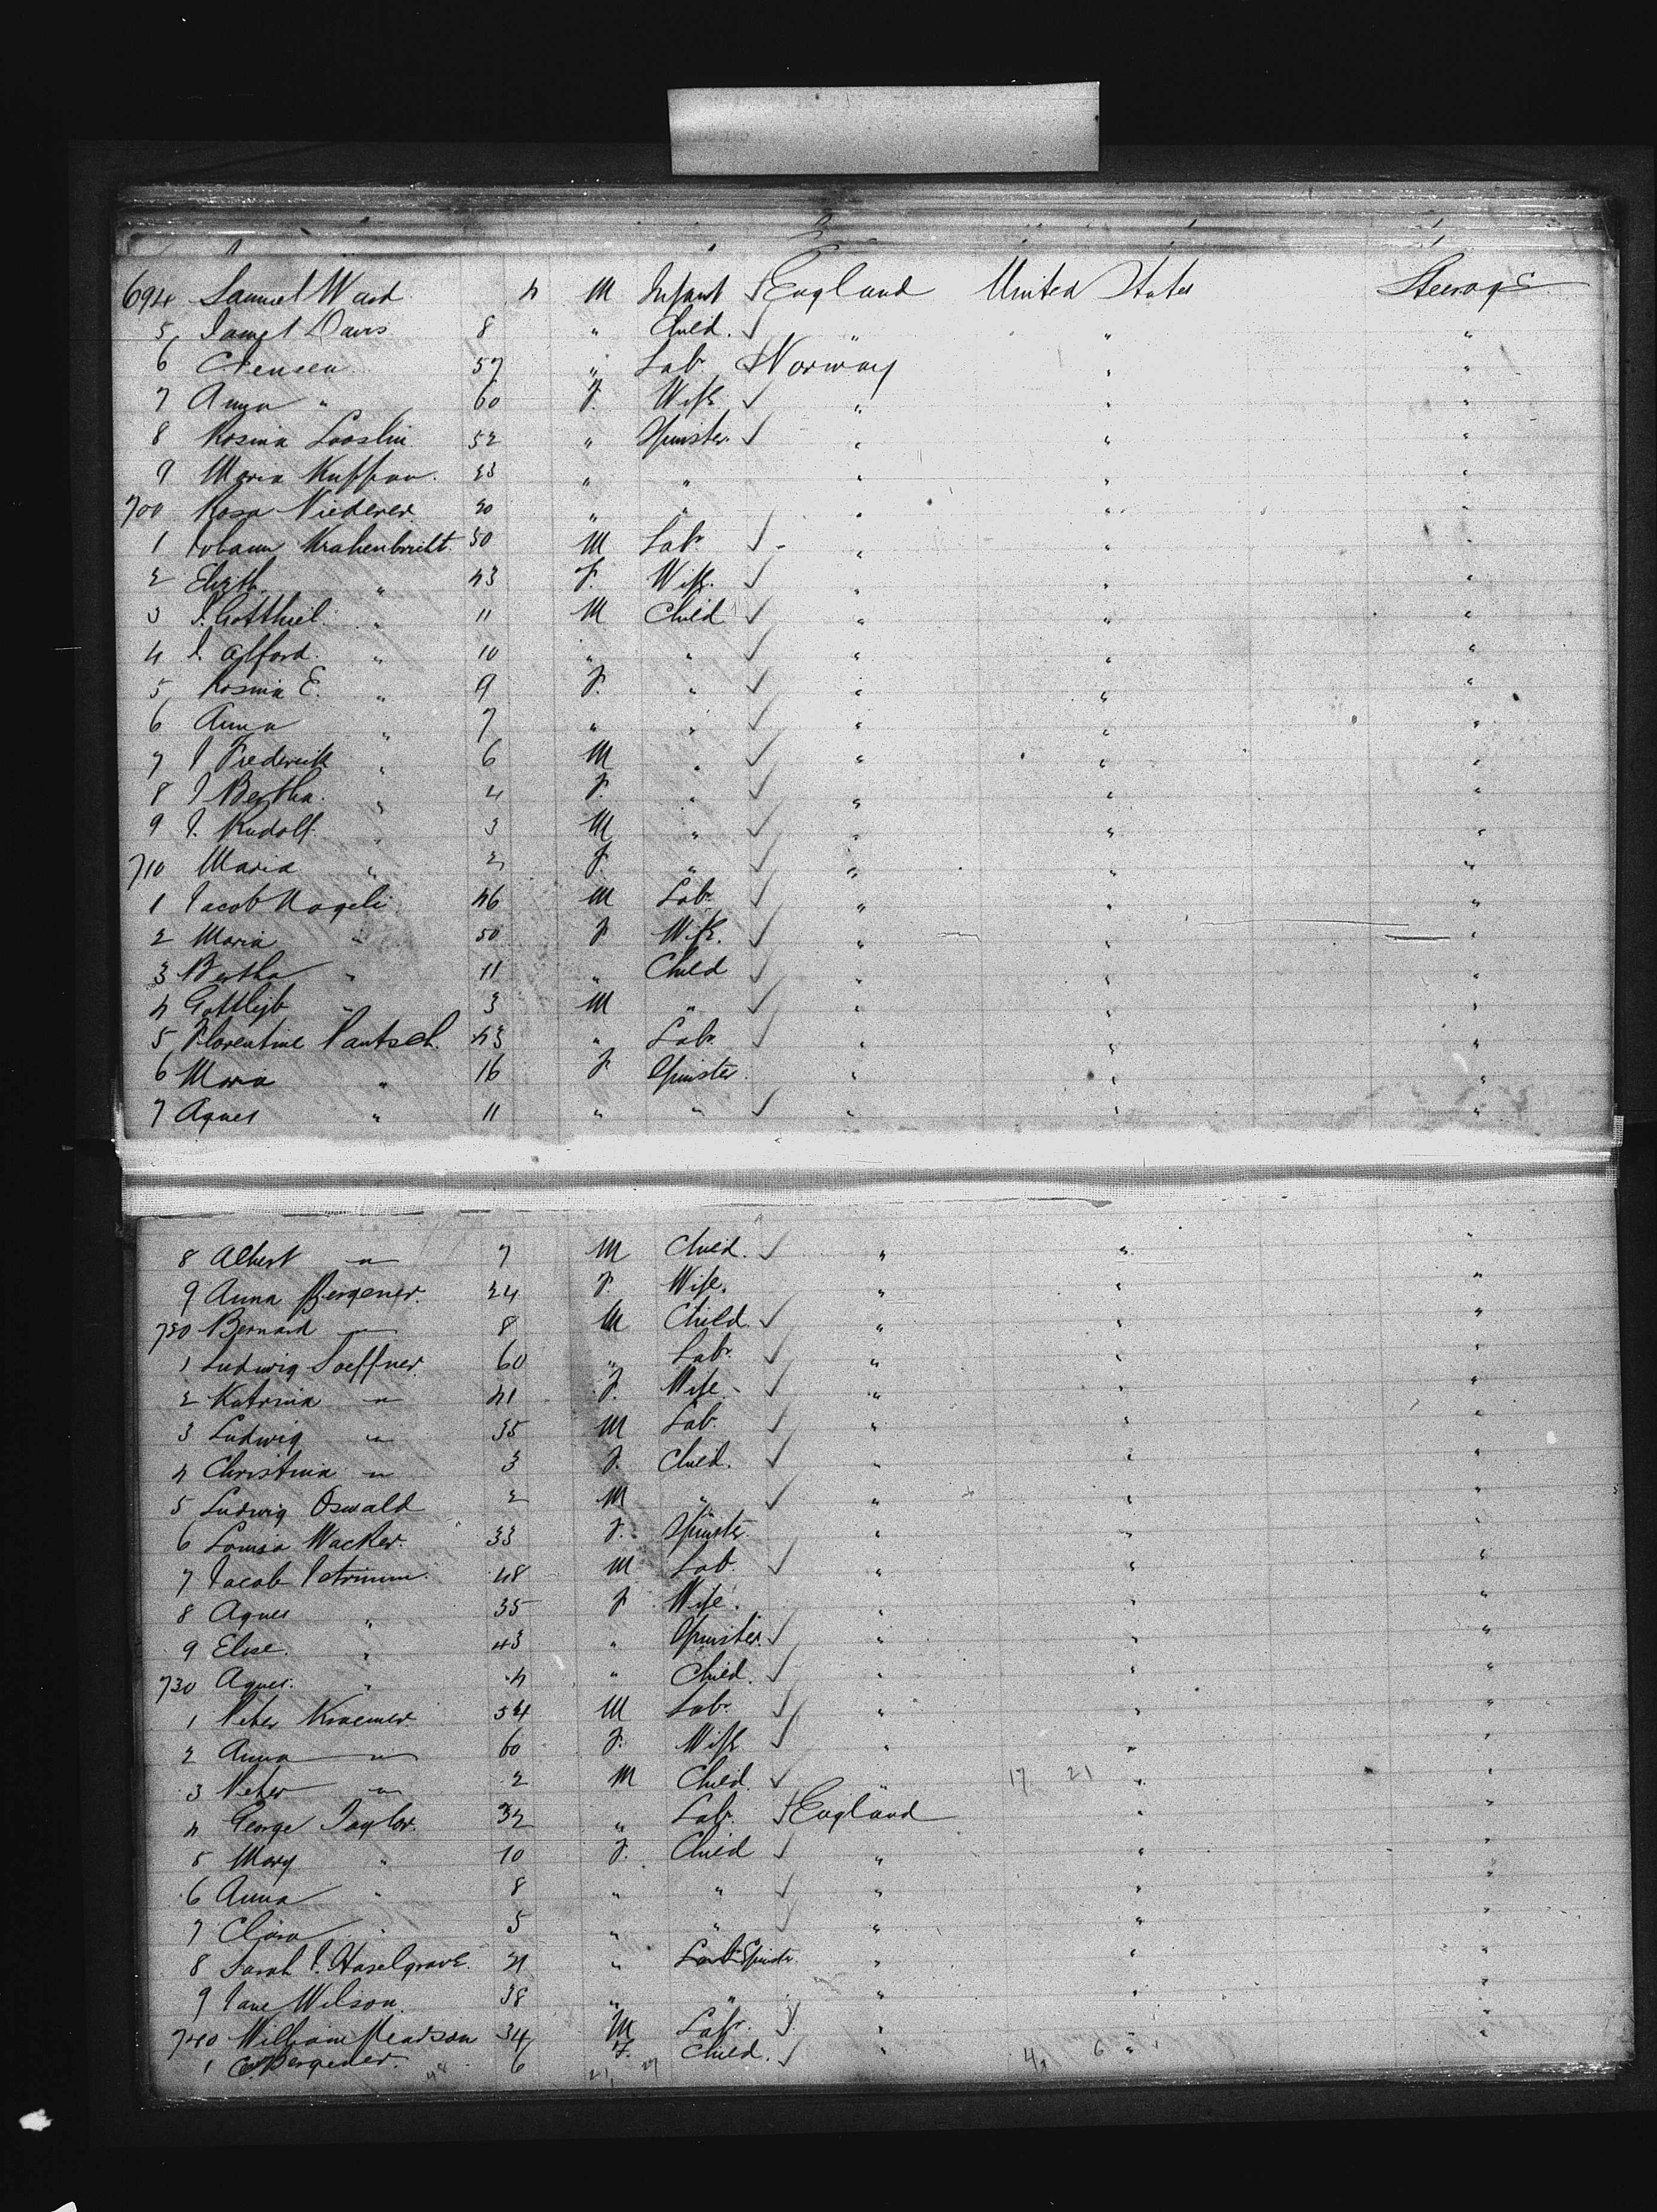 694 Samuel Ward 4 M Infant ✓ England United States Steerage
5 James Davis 8 " Child. ✓ " " "
6 C Jensen 57 " Lab. ✓ Norway " "
7 Anna " 60 F. Wife ✓ " " "
8 Rosina Looslin 52 " Spinster. ✓ " " "
9 Maria Kuffran. 23 " " " " "
700 Rosa Niederer. 20 " " " " "
1 Johann Krahenbricht. 50 M Lab. ✓ " " "
2 Elizth " 43 F. Wife. ✓ " " "
3 J. Gotthiel. " 11 M Child ✓ " " "
4 J. Alford. " 10 " " ✓ " " "
5 Rosina E. " 9 F. " ✓ " " "
6 Anna " 7 " " ✓ " " "
7 J Frederick " 6 M " ✓ " " "
8 J Bertha. " 4 F. " ✓ " " "
9 J. Rudolf. " 3 M " ✓ " " "
710 Maria " 2 F. " ✓ " " "
1 Jacob Nageli 46 M Lab. ✓ " " "
2 Maria " 50 F Wife. ✓ " " "
3 Bertha " 11 " Child ✓ " " "
4 Gottlieb " 3 M " ✓ " " "
5 Florentine Pantsch. 43 " Lab. ✓ " " "
6 Maria " 16 F Spinster. " " "
7 Agnes " 11 " " ✓ " " "
8 Albert " 7 M Child. ✓ " " "
9 Anna Bergener. 24 F. Wife. " " "
720 Bernard " 8 M Child. ✓ " " "
1 Ludwig Soeffner. 60 " Lab. ✓ " " "
2 Katrina " 41 F. Wife. ✓ " " "
3 Ludwig " 35 M Lab. ✓ " " "
4 Christina " 3 F. Child. ✓ " " "
5 Ludwig Oswald 2 M " ✓ " " "
6 Louisa Wacker. 33 F. Spinster. " " "
7 Jacob 48 M Lab. ✓ " " "
8 Agnes " 35 F Wife. " " "
9 Elise. " 43 " Spinster. ✓ " " "
730 Agnes. " 4 " Child. ✓ " " "
1 Peter Kraemer. 54 M Lab. ✓ " " "
2 Anna " 60 F. Wife ✓ " " "
3 Peter " 2 M Child. ✓ " 17 21 " "
4 George Taylor. 32 " Lab. ✓ England " "
5 Mary " 10 F. Child ✓ " " "
6 Anna " 8 " " ✓ " " "
7 Clara " 5 " " ✓ " " "
8 Sarah J. Haselgrave. 21 " Lab Spinster. " " "
9 Jane Wilson. 38 " " " " "
740 William Meadson 34 M Lab. ✓ " " "
1 C. Bergener. 6 F. Child. ✓ " 4 6 " "